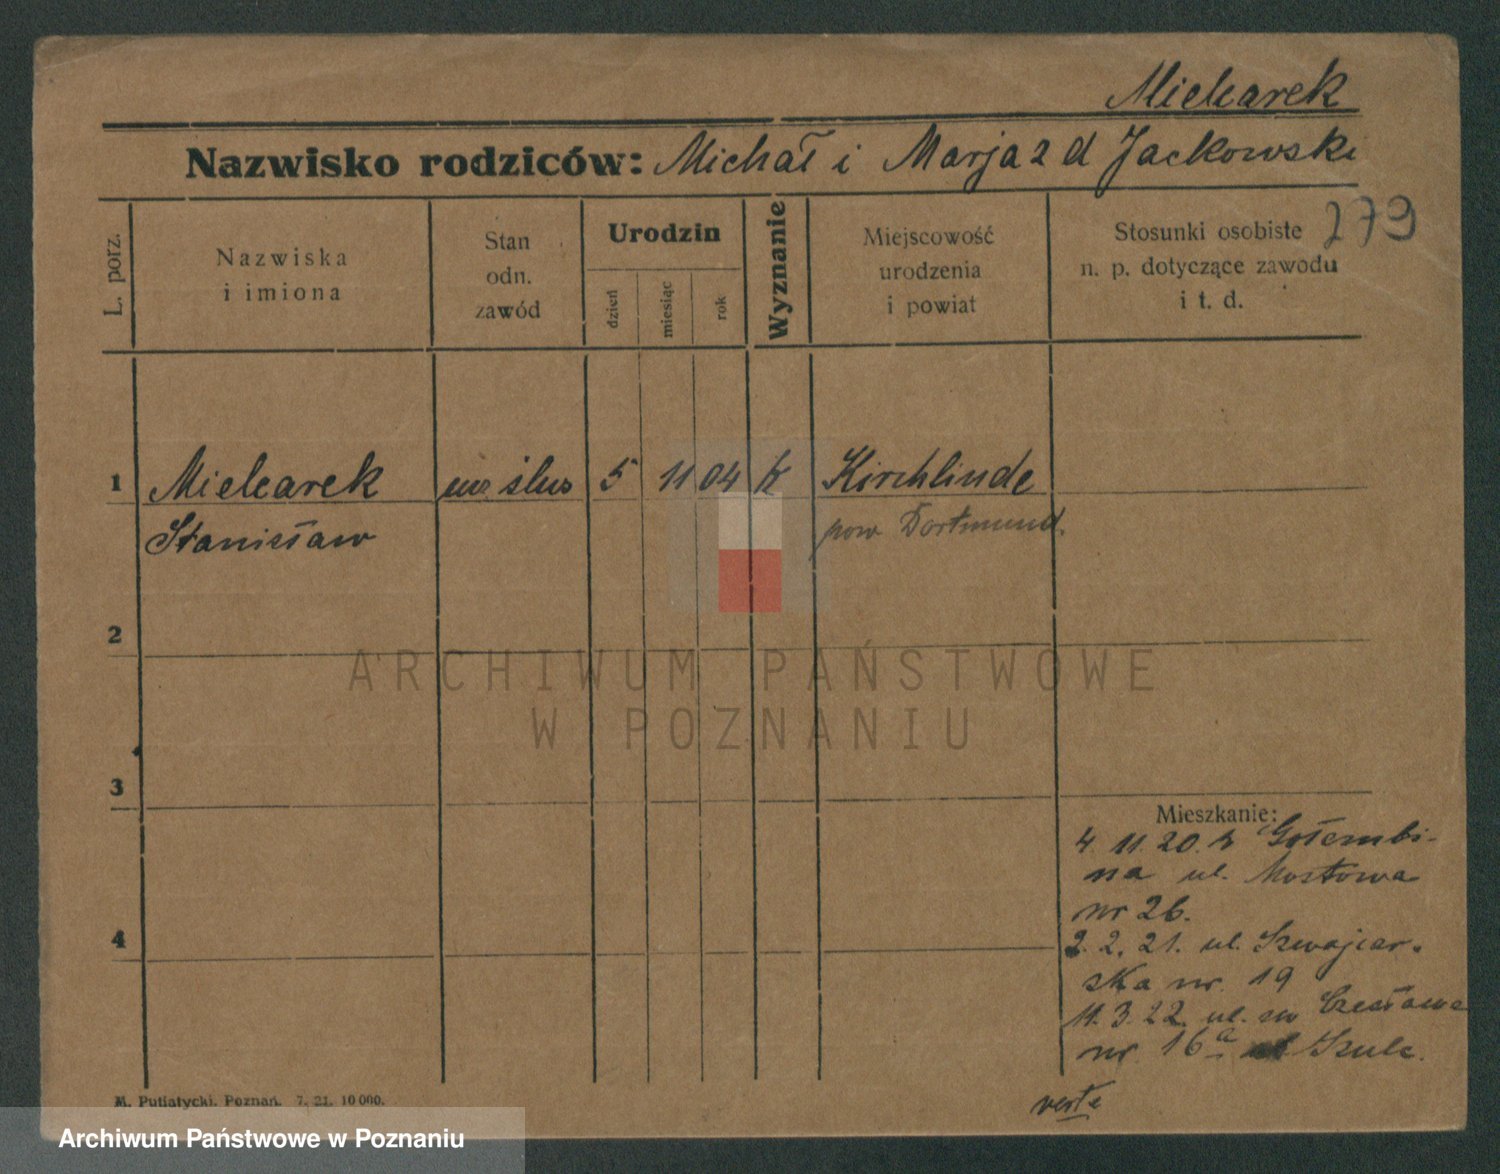 Mielcarek
Nazwisko rodziców: Michał i Marja z d Jackowski
279
L. porz.
Nazwiska
i imiona
Stan
odn.
zawód
Urodzin
dzień
miesiąc
rok
Wyznanie
Miejscowość
urodzenia
i powiat
Stosunki osobiste
n. p. dotyczące zawodu
i t. d.
1
Mielcarek
ucz ślus
5
11
04
k
Kirchlinde
Stanisław
pow Dortmund.
2
ARCHIWUM PAŃSTWOWE
W POZNANIU
3
Mieszkanie:
4. 11. 20. z Gołembi-
na ul. Mostowa
nr 26.
4
2. 2. 21. ul. Szwajcar-
ska nr. 19
11. 3. 22. ul. św Czesława
nr. 16a Szulc.
verte
M. Putiatycki. Poznań. 7. 21. 10 000.
Archiwum Państwowe w Poznaniu